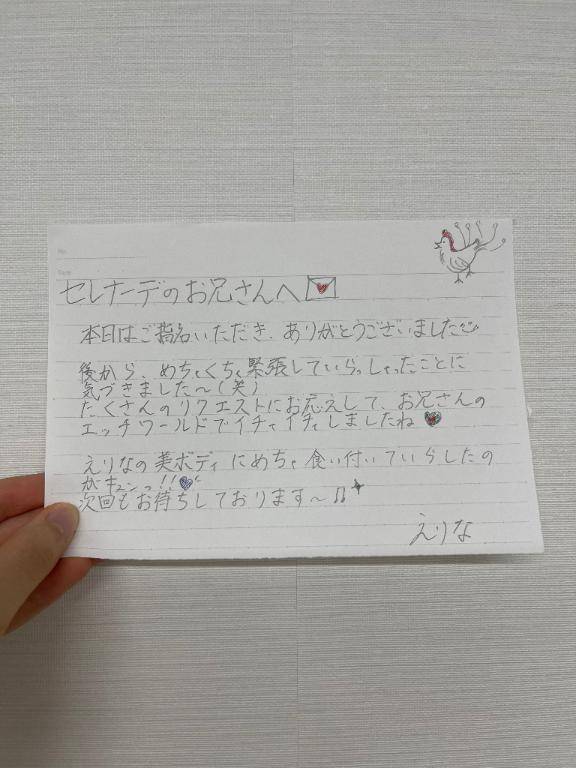 セレナーデのお兄さんへ
本日はご指名いただき、ありがとうございました
後から、めちゃくちゃ緊張していらっしゃったことに
気づきました〜(笑)
たくさんのリクエストにお応えして、お兄さんの
エッチワールドでイチャイチャしましたね
えりなの美ボディにめちゃ食い付いていらしたの
がキュンっ!!
次回もお待ちしております〜!!
えりな